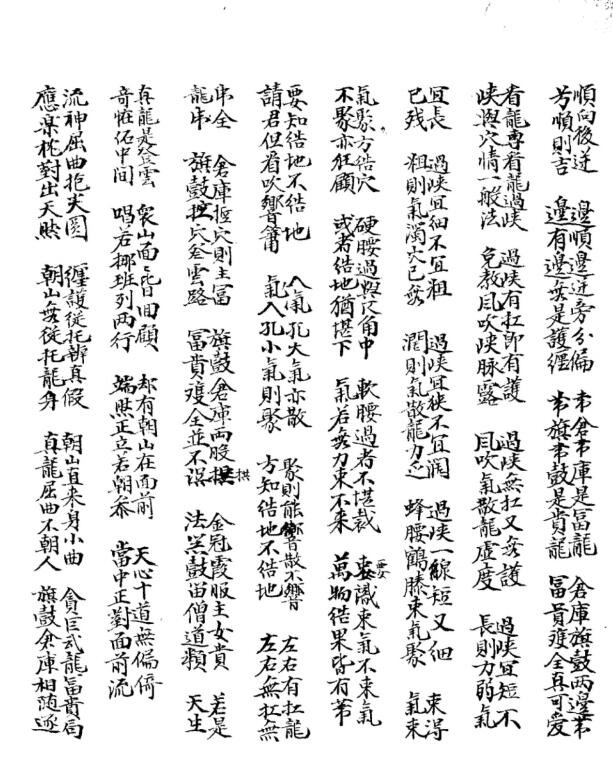 順向後迳 邊順邊迳旁分偏 帯倉帯庫是冨龍 倉庫旗鼓两邊帯
芳順則吉 邊有邊無是護纏 帯旗帯鼓是貴龍 冨貴䕶全真可爱
看龍專看龍過峡 過峡有扛即有護 過峡無扛又無護 過峡宜短不
峡與穴情一般法 免教風吹峡脉露 風吹氣散龍虚度 長則力弱氣
宜長 過峡宜细不宜粗 過峡宜狭不宜濶 過峡一線短又细 束得
已残 粗則氣濁穴已無 濶則氣散龍力乏 蜂腰鶴膝束氣聚 氣束
氣聚方结穴 硬腰過與反角中 軟腰過者不堪裁 要識束氣不束氣
不聚亦狂顧 或者结地猶堪下 氣若無力束不来 萬物结果皆有蒂
要知结地不结地 人氣孔大氣亦散 聚則能響散不響 左右有扛龍
請君但看吹響簫 氣入孔小氣則聚 方知结地不结地 左右無扛無
串全 倉庫捱穴則主冨 旗鼓倉庫两股拱 金冠霞服主女貴 若是
龍串 旗鼓捱穴登雲路 冨貴䕶全並不误 法器鼓笛僧道類 天生
真龍是登雲 衆山面皆回顧 却有朝山在面前 天心十道無偏倚
奇恠佑中間 唱若挪班列两行 端然正立若朝叅 當中正對面前流
流神屈曲抱尖圓 纏護從托辨真假 朝山直来身小曲 貪巨武龍冨貴局
應樂枕對出天然 朝山無從托龍身 真龍屈曲不朝人 旗鼓倉庫相随逐